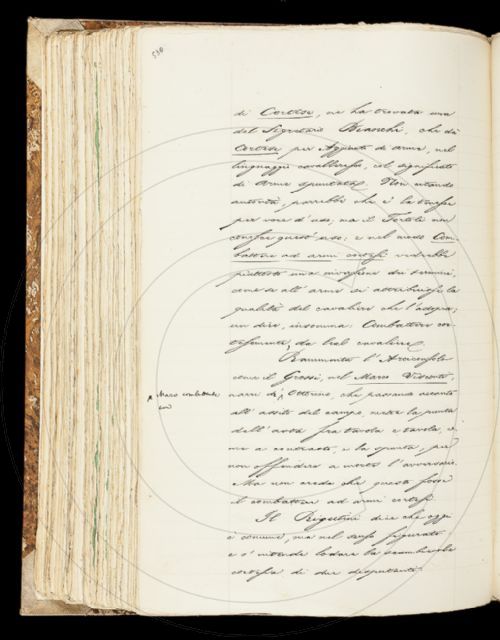 530
di Cortese, ne ha trovata una
del Segretario Bianchi, che dà
Cortese, per Aggiunto di arme, nel
linguaggio cavalleresco, col significato
di Arme spuntata. Non citando
autorità, parrebbe che è la desse
per voce d'uso, ma il Tortoli non
conosce quest'uso; e nel modo Com-
battere ad armi cortesi vedrebbe
piuttosto una inversione dei termini,
come se all'arme si attribuisse la
qualità del cavaliere che l'adopra;
un dire, insomma Combattere cor-
tesemente, da leal cavaliere.
Rammenta l'Arciconsolo
come il Grossi, nel Marco Visconti,
narri di Ottorino, che passava accanto
all'assito del campo, mette la punta
dell'asta fra tavola e tavola, e
ne a contrasto, e la spunta, per
non offendere a morte l'avversario.
Ma non crede che questo fosse
il combattere ad armi cortesi.
Il Rigutini dice che oggi
è comune, ma nel senso figurato
e s'intende lodare la scambievole
cortesia di due disputanti.
Marco combattente